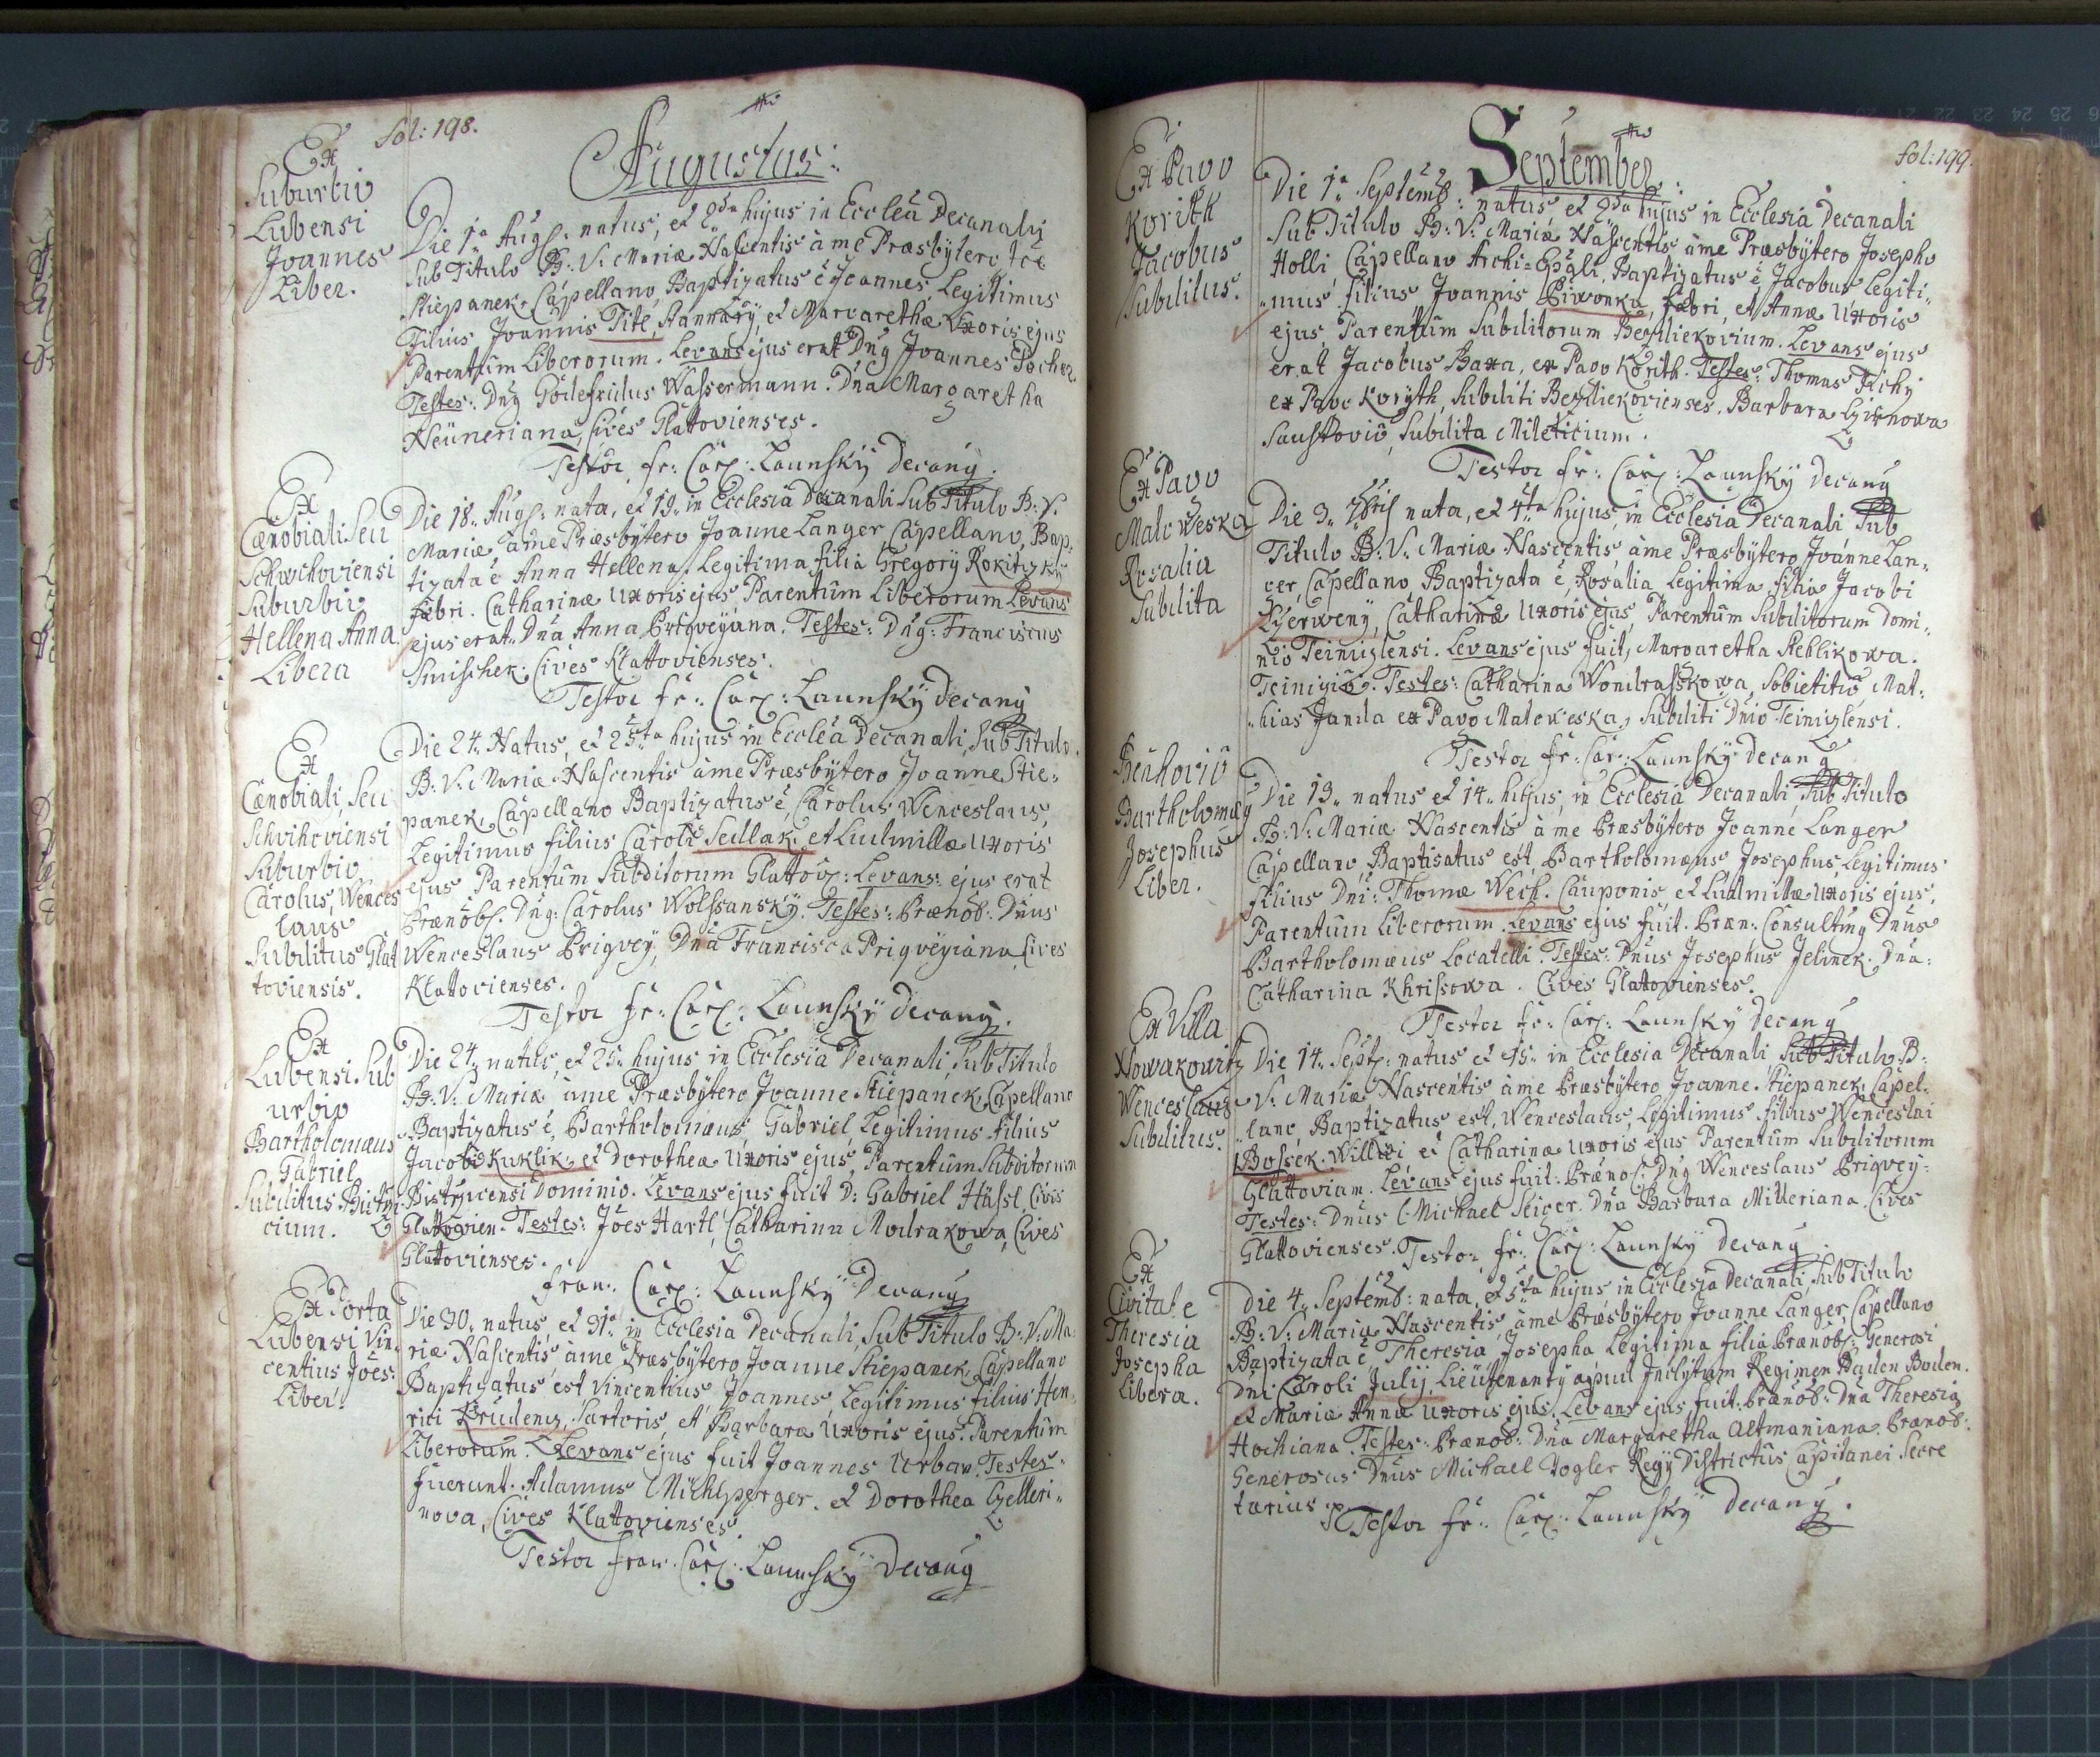 fol: 198.
Augustus:
Ex
Suburbio
Lubensi
Joannes
Liber.
Die 1a Aug: natus, et 2da hujus in Ecclea Decanali
Sub Titulo B: V: Mariæ Nascentis à me Præsbÿtero Joe
Stiepanek, Capellano, Baptizatus e Joannes, Legitimus
Filius Joannis Tite, et Margarethæ Uxoris ejus
Parentum Liberorum. Levans ejus erat Dng Joannes Pocher
Testes: Dng Godefridus Wassermann. Dna Margaretha
Neüneriana, Cives Glattovienses.
Testor fr: Car: Launskÿ Decang.
Ex
Cœnobiali Seu
Schwihoviensi
Suburbio
Hellena Anna.
Libera
Die 18. Aug: nata, et 19. in Ecclesia Decanali Sub Titulo B: V:
Mariæ, à me Præsbÿtero Joanne Langer Capellano, Bap=
tizata e Anna Hellena, Legitima filia Gregorÿ Rokitizkÿ
fabri. Catharinæ Uxoris ejus Parentum Liberorum Levans
ejus erat. Dna Anna Prigveÿiana. Testes: Dng: Franciscus
Smischek. Cives Klattovienses.
Testor fr: Car: Launskÿ Decang
Ex
Cœnobiali Seu
Schvihoviensi
Suburbio
Carolus, Wences
laus
Subditus Glat
toviensis.
Die 24. Natus, et 25ta hujus in Ecclea Decanali, Sub Titulo
B: V: Mariæ Nascentis à me Præsbÿtero Joanne Stie=
panek, Capellano Baptizatus e, Carolus Wenceslaus,
Legitimus filius Caroli Sedlak. et Ludmillæ Uxoris
ejus Parentum Subditorum Glattov: Levans: ejus erat
Prænob: Dng: Carolus Wolssanskÿ. Testes: Prænob: Dnus
Wenceslaus Prigveÿ, Dna Francisca Prigveÿiana, Cives
Klattovienses.
Testor fr: Car: Launskÿ Decang.
Ex
Lubensi Sub
urbio
Bartholomæus
Gabriel
Subditus Bistri
cium.
Die 24. natus, et 25. hujus in Ecclesia Decanali, Sub Titulo
B: V: Mariæ à me Præsbÿtero Joanne Stiepanek, Capellano
Baptizatus e, Bartholomæus, Gabriel, Legitimus Filius
Jacobi Kuklik, et Dorothea Uxoris ejus, Parentum Subditorum
Dominio. Levans ejus fuit D: Gabriel Hässl, Civis
Glattovien. Testes: Joes Hartl, Catharina Modrakowa, Cives
Glattovienses.
fran: Car: Launskÿ Decang
Ex Porta
Lubensi Vin=
centius Joes:
Liber.
Die 30. natus, et 31a in Ecclesia Decanali, Sub Titulo B: V: Ma
riæ Nascentis à me Præsbÿtero Joanne Stiepanek, Capellano
Baptizatus est Vincentius Joannes, Legitimus filius Hen
rici Prudenz, Sartoris, et Barbara Uxoris ejus. Parentum
Liberorum. Levans ejus fuit Joannes Urban. Testes
fuerunt. Adamus Mühlperger. et Dorothea Czelleri=
nova, Cives Klattovienses
Testor fran: Car: Launskÿ Decang
fol: 199.
September
Ex Pavo
Koritk
Jacobus
Subditus.
Die 1a Septemb: natus et 2da hujus in Ecclesia Decanali
Sub Titulo B: V: Mariæ Nascentis à me Præsbÿtero Josepho
Holli Capellano Baptizatus e Jacobus Legiti=
mus filius Joannis Piwonka, fabri, et Annæ Uxoris
ejus, Parentum Subditorum Bezdiekovium. Levans ejus
erat Jacobus Baxa, ex Pavo Korith. Testes: Thomas Tichi
ex Pavo Korÿth, Subditi Bezdiekovienses. Barbara
Subdita Mileticium.
Testor fr: Car: Launskÿ Decang
Ex Pavo
Maloweska
Rosalia
Subdita
Die 3. 7bris nata, et 4ta hujus, in Ecclesia Decanali Sub
Titulo B: V: Mariæ Nascentis à me Præsbÿtero Joanne Lan=
ger, Capellano Baptizata e, Rosalia Legitima filia Jacobi
Czerwenÿ, Catharinæ Uxoris ejus, Parentum Subditorum Domi=
nio Teinizlensi. Levans ejus fuit, Margaretha Reblikowa.
Testes: Catharina Wondrasskowa, Mat:
hias Janda ex Pavo Maloweska, Subditi Dnio Teinizlensi.
Testor fr: Car: Launskÿ Decang
Bartholomæg
Josephus
Liber.
Die 13. natus et 14. hujus, in Ecclesia Decanali, Sub Titulo
B: V: Mariæ Nascentis à me Præsbÿtero Joanne Langer
Capellano, Baptisatus est, Bartholomæus Josephus, Legitimus
filius Dni: Thomæ Wech. Cauponis et Ludmillæ Uxoris ejus.
Parentum Liberorum. Levans ejus fuit. Præn: Consulting Dnus
Bartholomæus Locatelli. Testes: Dnus Josephus Jelinek. Dna:
Catharina Khrissowa. Cives Glattovienses.
Testor fr: Car: Launskÿ Decang
Ex Villa
Nowakowitz
Wenceslaus
Subditus.
Die 14. Sept: natus et 15. in Ecclesia Decanali, Sub Titulo B:
V: Mariæ Nascentis à me Præsbÿtero Joanne Stiepanek, Capel=
lano, Baptizatus est, Wenceslaus, Legitimus filius Wenceslai
Bossek. Villici et Catharinæ Uxoris ejus Parentum Subditorum
Glattoviam. Levans ejus fuit: Prænob: Dng Wenceslaus Prigveÿ:
Testes: Dnus Michael Seiger. Dna Barbara Milleriana. Cives
Glattovienses. Testor fr: Car: Launskÿ Decang
Ex
Civitate
Theresia
Josepha
Libera.
Die 4. Septemb: nata, et 5ta hujus in Ecclesia Decanali, Sub Titulo
B: V: Maria Nascentis, à me Præsbÿtero Joanne Langer, Capellano
Baptizata e Theresia Josepha Legitima Filia Prænob: Generosi
Dni Caroli Julij Lieutenantÿ apud Inclytum Regimen Baden Baden.
et Mariæ Annæ Uxoris ejus. Levans ejus fuit. Prænob: Dna Theresia
Hochiana. Testes: Prænob: Dna Margaretha Altmaniana. Prænob:
Generosus Dnus Michael Vogler Regÿ Districtus Capitanei Secre
tarius
Testor fr: Car: Launskÿ Decang.